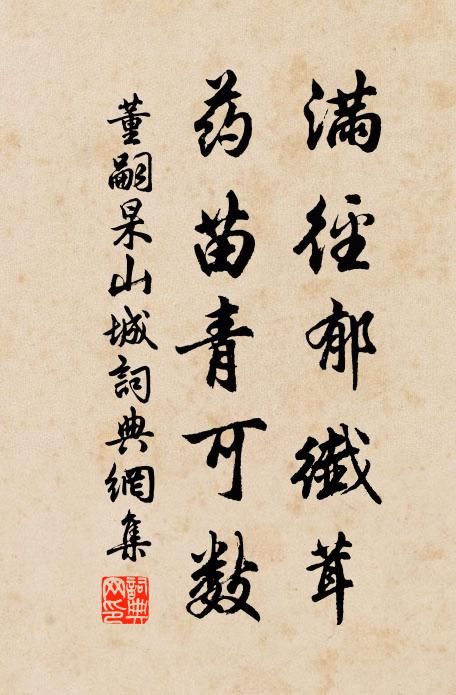 满径郁纖茸
药苗青可数
董嗣杲山城詞典網集
詞典网印